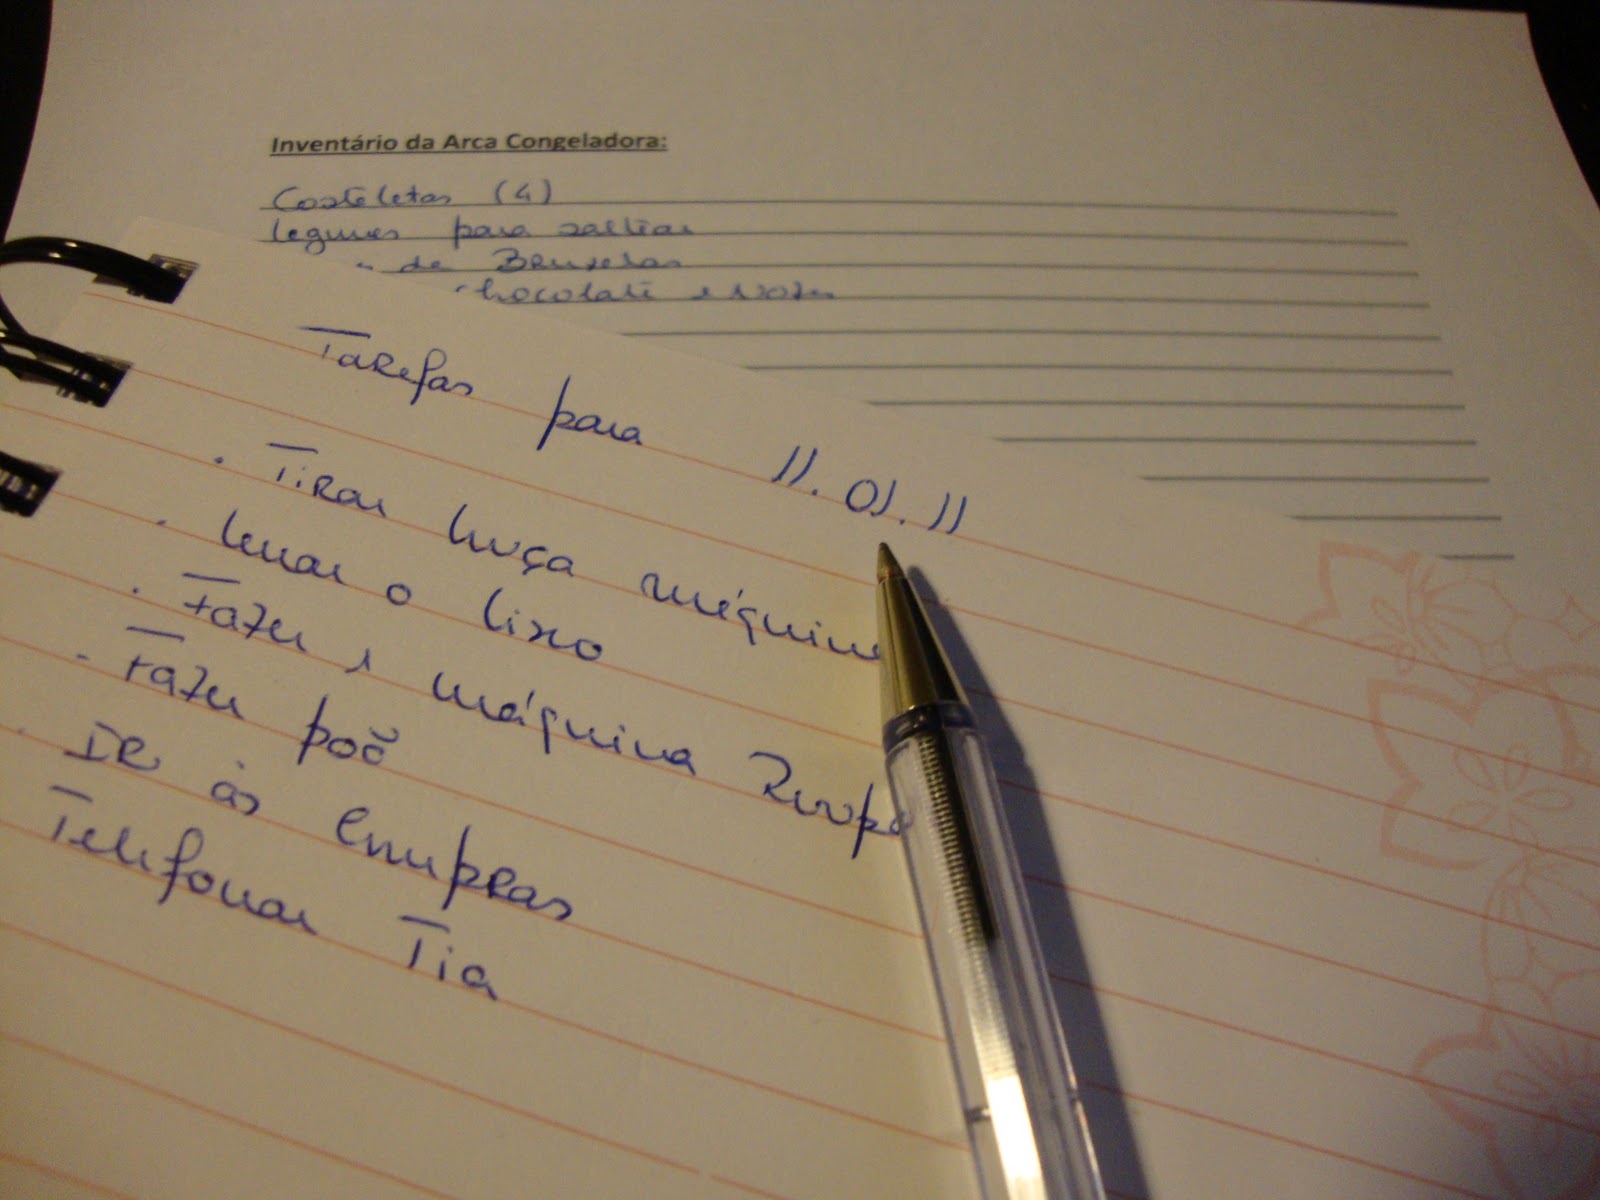 Inventário da Arca Congeladora:
Costeletas (4)
legumes para saltear
de Bruxelas
chocolate e Nozes
Tarefas para 11.01.11
. Tirar louça máquina
. levar o lixo
. Fazer 1 máquina Roupa
. Fazer pão
. IR às compras
Telefonar Tia